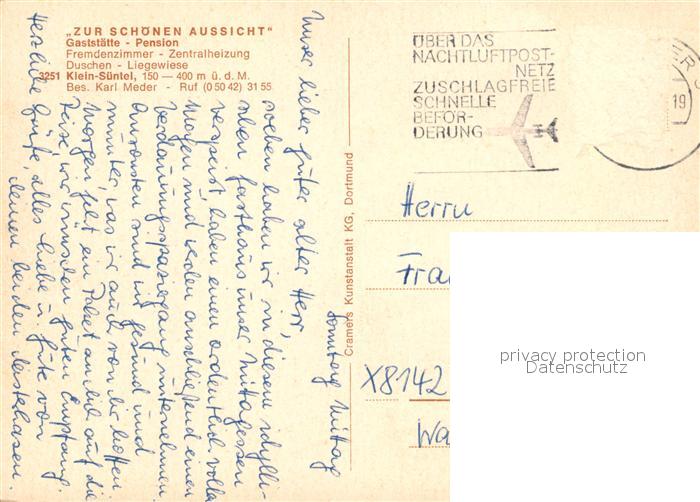 „ZUR SCHÖNEN AUSSICHT"
Gaststätte - Pension
Fremdenzimmer - Zentralheizung
Duschen - Liegewiese
3251 Klein-Süntel, 150 — 400 m ü. d. M.
Bes. Karl Meder - Ruf (0 50 42) 31 55
ÜBER DAS
NACHTLUFTPOST-
NETZ
ZUSCHLAGFREIE
SCHNELLE
BEFÖR-
DERUNG
19
Sonntag Mittag
Unser lieber guter alter Herr,
soeben haben wir in diesem idylli-
schen Gasthaus unser Mittagessen
verspeist, haben einen ordentlich vollen
Magen und werden anschließend einen
Verdauungsspaziergang unternehmen.
Ansonsten sind wir gesund und
munter, was wir auch von dir hoffen.
Morgen geht ein Paket an dich auf die
Reise, wir wünschen guten Empfang.
Herzliche Grüße, alles Liebe u. Gute von
deinen beiden
Cramers Kunstanstalt KG, Dortmund
Herrn
Fra
X8142
Wa
privacy protection
Datenschutz